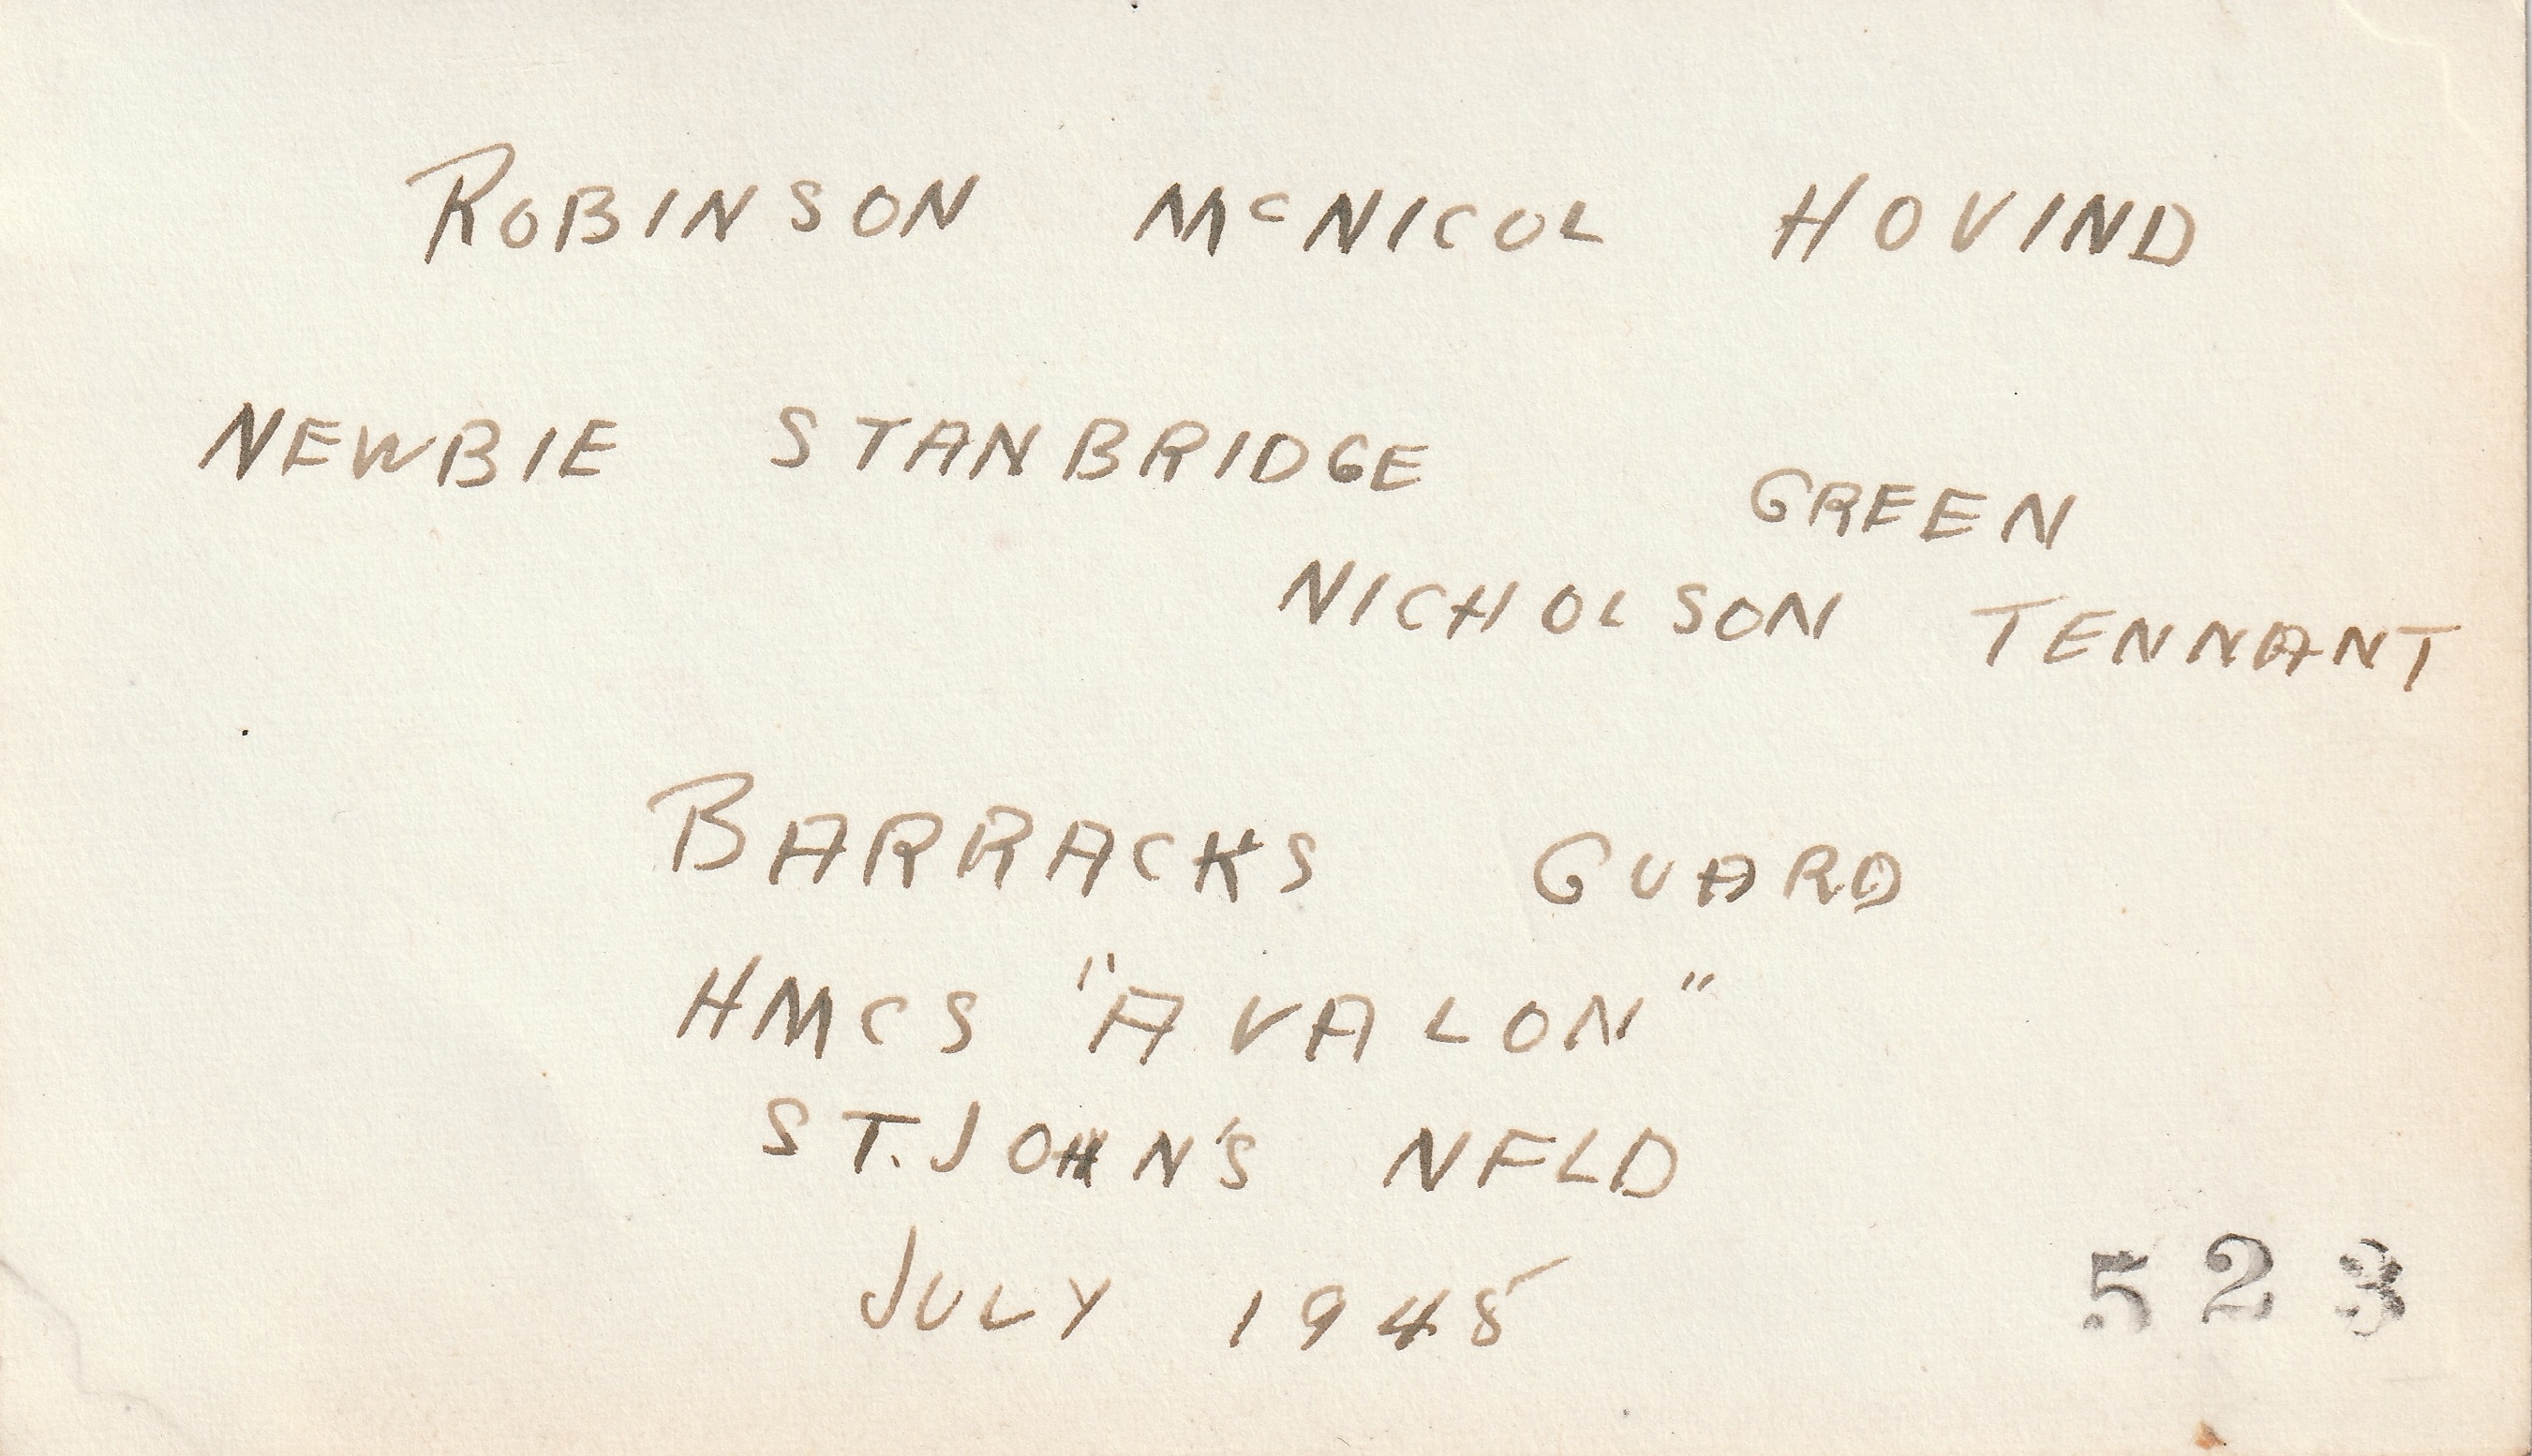 ROBINSON McNICOL HOVIND
NEWBIE STANBRIDGE
GREEN
NICHOLSON TENNANT
BARRACKS GUARD
HMCS "AVALON"
ST. JOHN'S NFLD
JULY 1945
523